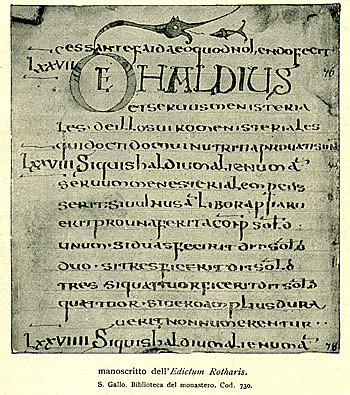 cessante faida eo quod nolendo fecit
LXXVII DE HALDIUS 76
et seruus menisteria
les · de illos uiro menisteriales
qui docti domui nutriti aprouati sun
LXXVIII Siquis haldium alienum aut
seruum menesterialem
serit: si uulnus
erit pro una ferita conp solid
unum · si duas fecerit dit solid
duo · si tres ficerit dit solid
tres si quattuor ficerit dit solid
quattuor · si uero amplius dura
uerit non numerentur
LXXVIIII Siquis haldium alienum aut 78
manoscritto dell'Edictum Rotharis.
S. Gallo, Biblioteca del monastero. Cod. 730.